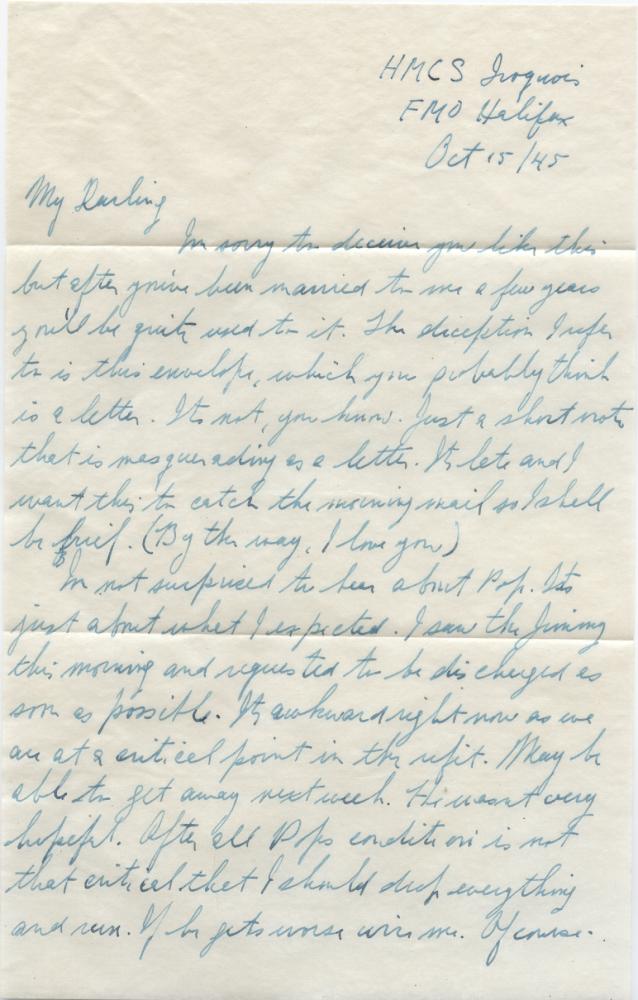 HMCS Iroquois
FMO Halifax
Oct 15/45
My Darling
Im sorry to deceive you like this
but after you've been married to me a few years
you'll be quite used to it. The deception I refer
to is this envelope, which you probably think
is a letter. Its not, you know. Just a short note
that is masquerading as a letter. Its late and I
want this to catch the morning mail so I shall
be brief. (By the way, I love you)
Im not surprised to hear about Pop. Its
just about what I expected. I saw the Jimmy
this morning and requested to be discharged as
soon as possible. Its awkward right now as we
are at a critical point in the refit. May be
able to get away next week. He wasnt very
hopeful. After all Pops condition is not
that critical that I should drop everything
and run. If he gets worse wire me. Of course.